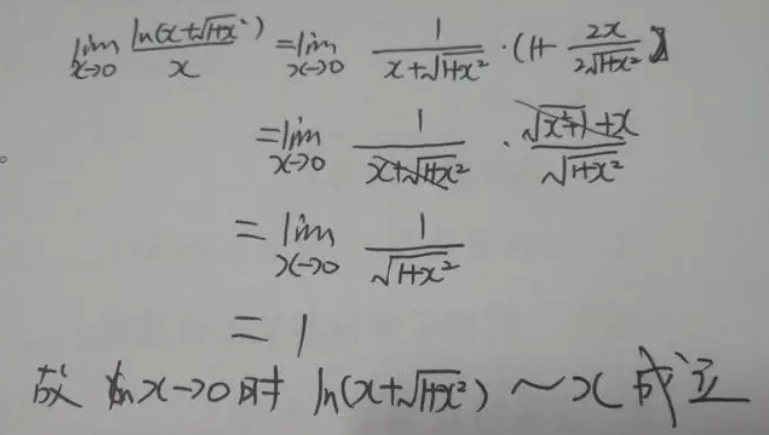 lim x→0 ln(x+√(1+x²))/x = lim x→0 1/(x+√(1+x²)) · (1+ 2x/(2√(1+x²)))
= lim x→0 1/(x+√(1+x²)) · (√(x²+1)+x)/√(1+x²)
= lim x→0 1/√(1+x²)
= 1
故 x→0时 ln(x+√(1+x²)) ~ x 成立